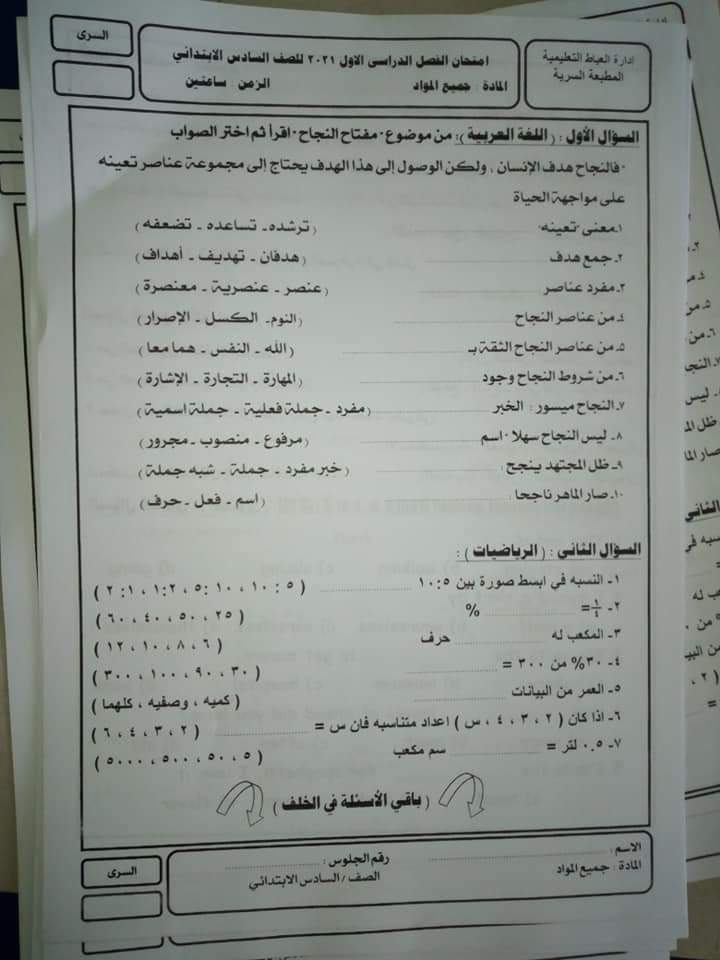 ادارة العياط التعليمية
المطبعة السرية
امتحان الفصل الدراسى الاول ٢٠٢١ للصف السادس الابتدائي
المادة : جميع المواد الزمن : ساعتين
السرى
السؤال الأول : ( اللغة العربية ) : من موضوع " مفتاح النجاح " اقرأ ثم اختر الصواب
" فالنجاح هدف الإنسان ، ولكن الوصول إلى هذا الهدف يحتاج إلى مجموعة عناصر تعينه
على مواجهة الحياة
١. معنى "تعينه" ( ترشده - تساعده - تضعفه )
٢. جمع هدف ( هدفان - تهديف - أهداف )
٣. مفرد عناصر ( عنصر - عنصرية - معنصرة )
٤. من عناصر النجاح ( النوم - الكسل - الإصرار )
٥. من عناصر النجاح الثقة بـ ( الله - النفس - هما معا )
٦. من شروط النجاح وجود ( المهارة - التجارة - الإشارة )
٧. النجاح ميسور : الخبر ( مفرد - جملة فعلية - جملة اسمية )
٨. ليس النجاح سهلا " اسم ( مرفوع - منصوب - مجرور )
٩. ظل المجتهد ينجح : ( خبر مفرد - جملة - شبه جملة )
١٠. صار الماهر ناجحا : ( اسم - فعل - حرف )
السؤال الثانى : ( الرياضيات ) :
١- النسبه في ابسط صورة بين ٥ : ١٠ ( ٥ : ١٠ ، ١٠ : ٥ ، ١:٢ ، ٢:١ )
٢- ١/٤ = % ( ٢٥ ، ٥٠ ، ٤٠ ، ٦٠ )
٣- المكعب له حرف ( ٦ ، ٨ ، ١٠ ، ١٢ )
٤- ٣٠% من ٣٠٠ = ( ٣٠ ، ٩٠ ، ١٠٠ ، ٣٠٠ )
٥- العمر من البيانات ( كميه ، وصفيه ، كلهما )
٦- اذا كان ( ٢ ، ٣ ، ٤ ، س ) اعداد متناسبه فان س = ( ٢ ، ٣ ، ٤ ، ٦ )
٧- ٠.٥ لتر = سم مكعب ( ٥ ، ٥٠ ، ٥٠٠ ، ٥٠٠٠ )
( باقي الأسئلة في الخلف )
الاسم :
رقم الجلوس :
المادة : جميع المواد
الصف / السادس الابتدائي
السرى